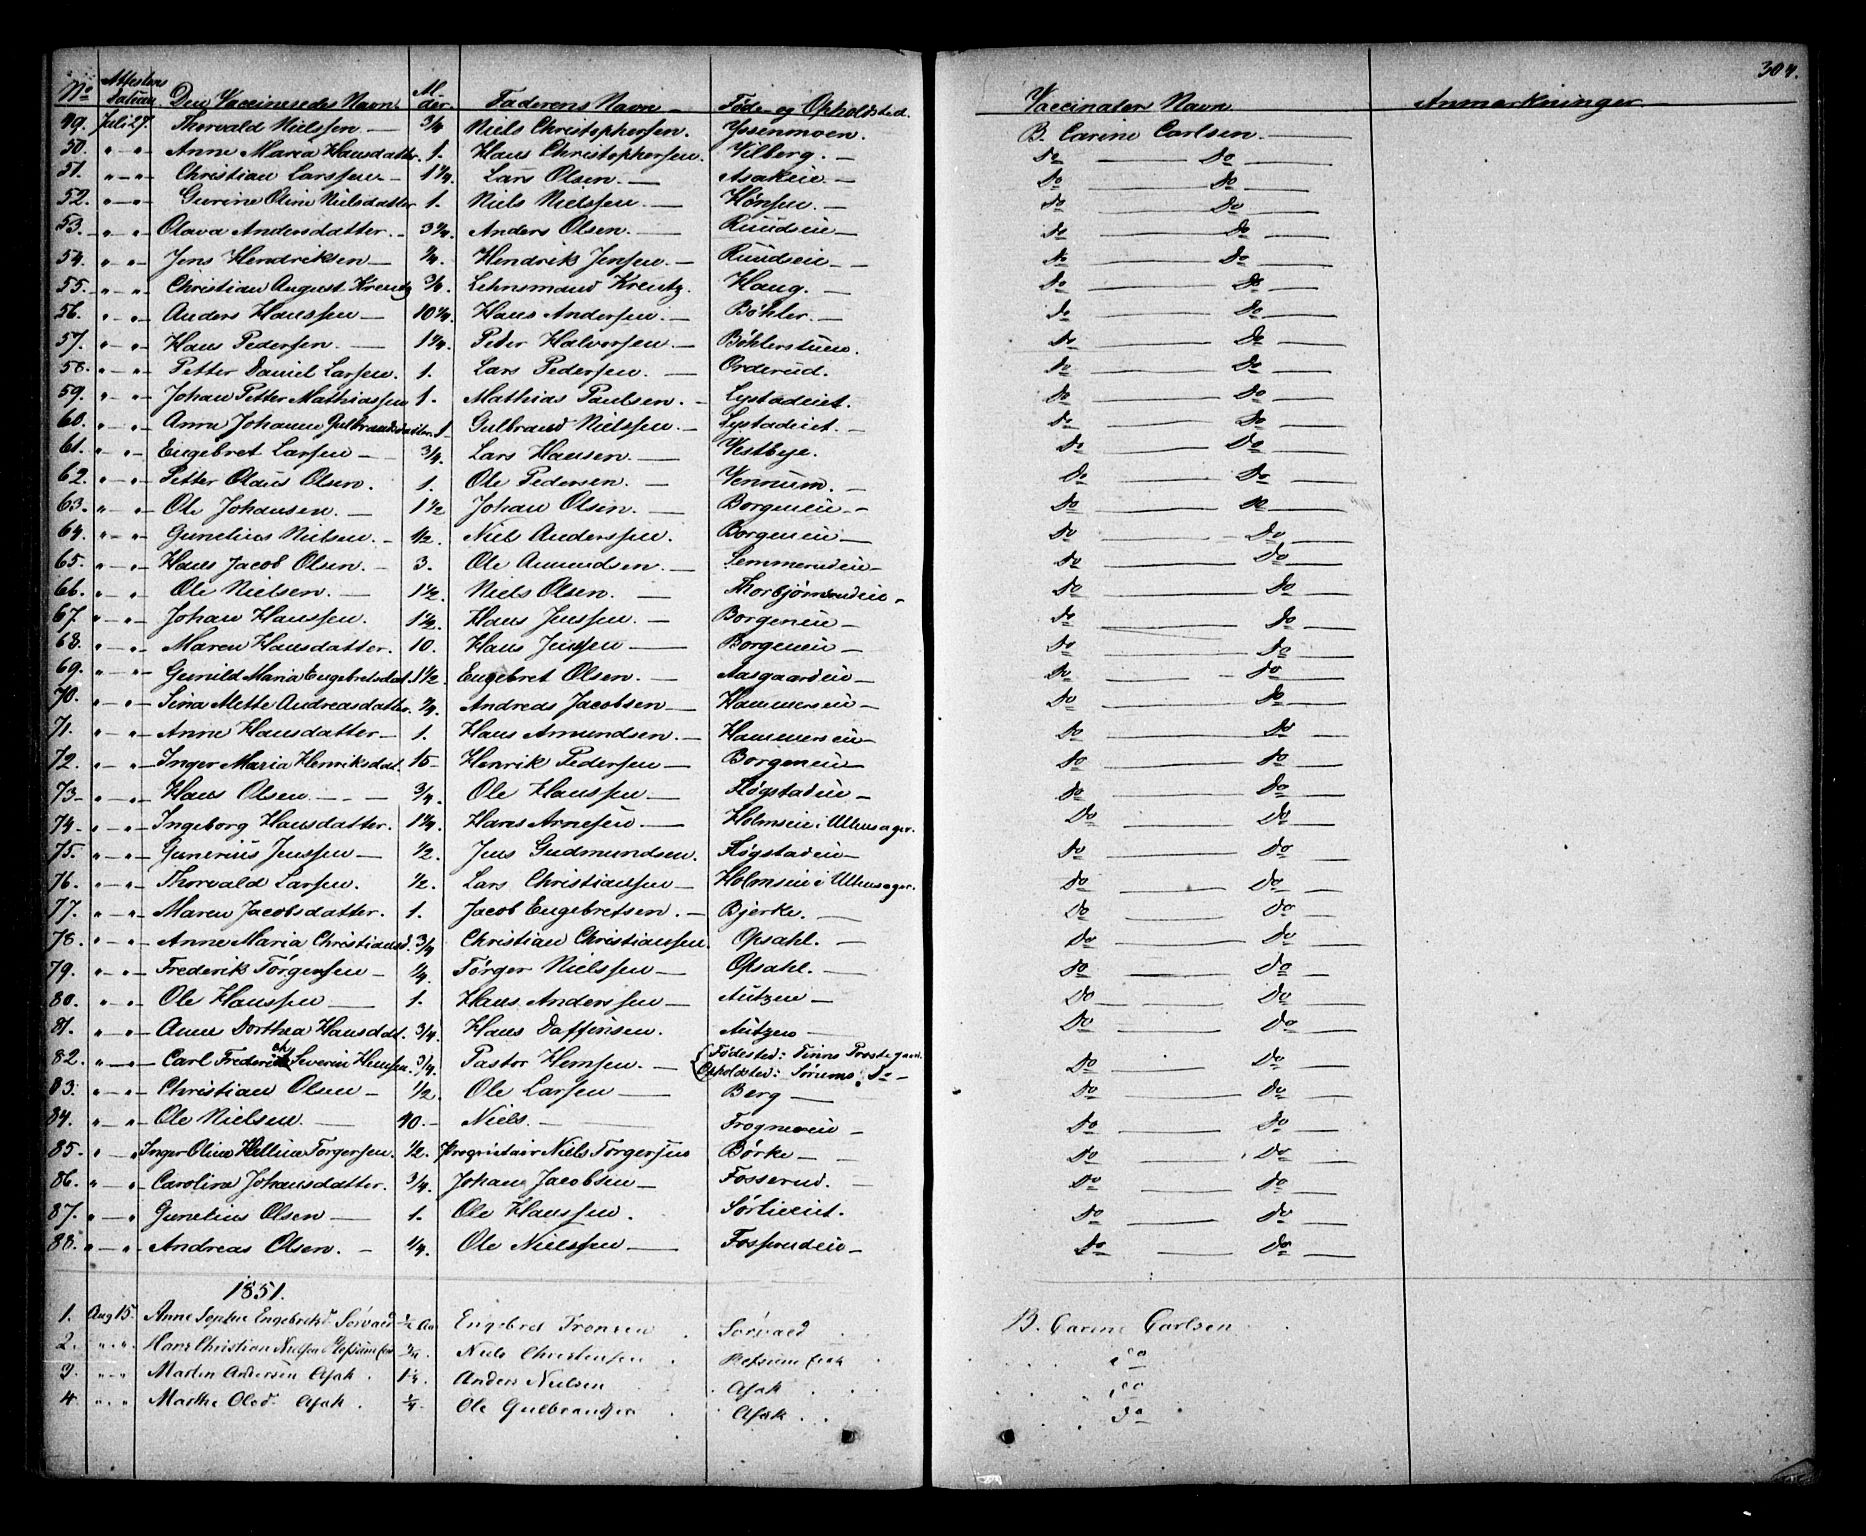 304.
No Attestens Datum Den Vaccineredes Navn. Alder. Faderens Navn Føde- og Opholdsted. Vaccinators Navn Anmærkninger
49. Juli 27. Thorvald Nielssen 3/4 Niels Christophersen. Yssenmoen. B. Carine Carlsen.
50. " " Anne Maria Hansdatter. 1. Hans Christophersen. Vilberg. Do Do
51. " " Christian Larssen 1 1/4. Lars Olsen. Asakeie Do Do
52. " " Gurine Oline Nielsdatter 1. Niels Nielssen. Hønsen. Do Do
53. " " Olava Andersdatter. 3 3/4. Anders Olsen. Ruudseie Do Do
54. " " Jens Hendriksen 3/4. Hendrik Jensen Ruudseie Do Do
55. " " Christian August Kreutz 3/4. Lehnsmand Kreutz. Haug. Do Do
56. " " Anders Hanssen 10 3/4. Hans Andersen. Böhler. Do Do
57. " " Hans Pedersen. 1 1/4. Peder Halvorsen. Böhlerstuen. Do Do
58. " " Petter Daniel Larsen. 1. Lars Pedersen. Orderud. Do Do
59. " " Johan Petter Mathiassen 1. Mathias Paulsen. Lystadeiet. Do Do
60. " " Anne Johanne Gulbrandsdatter. 1 Gulbrand Nielssen. Lystadeiet. Do Do
61. " " Engebret Larsen 3/4. Lars Hansen. Vestbye. Do Do
62. " " Petter Olaus Olsen. 1. Ole Pedersen. Vennum. Do Do
63. " " Ole Johansen. 1 1/2 Johan Olsen. Borgeneie Do Do
64. " " Gunelius Nielsen. 1/2. Niels Anderssen. Borgeneie Do Do
65. " " Hans Jacob Olsen. 3. Ole Amundsen. Lemmerudeie Do Do
66. " " Ole Nielsen. 1 1/2. Niels Olsen. Thorbjørnrudeie Do Do
67. " " Johan Hanssen. 1 1/2. Hans Jenssen Borgeneie Do Do
68. " " Maren Hansdatter. 10. Hans Jenssen Borgeneie Do Do
69. " " Gunild Maria Engebretsdat. 1 1/2. Engebret Olsen. Aasgaardeie Do Do
70. " " Lina Mette Andreasdatter. 3/4. Andreas Jacobsen Hammerseie Do Do
71. " " Anne Hansdatter 1. Hans Amundsen. Hammerseie Do Do
72. " " Inger Maria Henriksdat. 15 Henrik Pedersen Borgeneie Do Do
73 " " Hans Olsen 3/4. Ole Hanssen Fløgstadeie Do Do
74 " " Ingeborg Hansdatter. 1 1/4. Hans Arnesen Holmseie i Ullensager. Do Do
75. " " Gunerius Jenssen 1/2. Jens Gudmundsen. Fløgstadeie Do Do
76. " " Thorvald Larsen. 1/2. Lars Christiansen Holmseie i Ullensager. Do Do
77. " " Maren Jacobsdatter. 1. Jacob Engebretsen. Bjerke. Do Do
78. " " Anne Maria Christiansd. 3/4 Christian Christianssen. Opsahl. Do Do
79. " " Frederik Törgersen 1/4. Törger Nielssen Opsahl. Do Do
80. " " Ole Hanssen 1. Hans Anderssen Autzen Do Do
81. " " Anne Dorthea Hansdat. 3/4. Hans Daffinsen. Autzen Do Do
82. " " Carl Frederich Severin Hemsen. 3/4. Pastor Hemsen. {Fødested: Tinns Prestegaard. Opholdsted: Sørums Do Do Do
83. " " Christian Olsen 1/2. Ole Larsen Berg Do Do
84. " " Ole Nielsen 40. Niels. Frognereie Do Do
85. " " Inger Oline Helline Torgersen. 1/2. Proprietair Niels Torgersen Børke Do Do
86. " " Carolina Johansdatter. 3/4. Johan Jacobsen Fosserud. Do Do
87. " " Gunelius Olsen 1. Ole Hanssen. Sørlieeiet. Do Do
88. " " Andreas Olsen. 1/4. Ole Nielssen Fosserudeie Do Do
1851.
1. Aug 15. Anne Sophie Engebretsd Sørvaed 1/2 Aar Engebret Tronsen Sørvaed B. Carine Carlsen
2. " " Hans Christian Nielsen 3/4. Niels Christensen do
3. " " Martin Andersen Asak 1 1/4. Anders Nielsen Asak do
4. " " Marthe Olsd. Asak 1/4. Ole Gulbrandsen Asak do